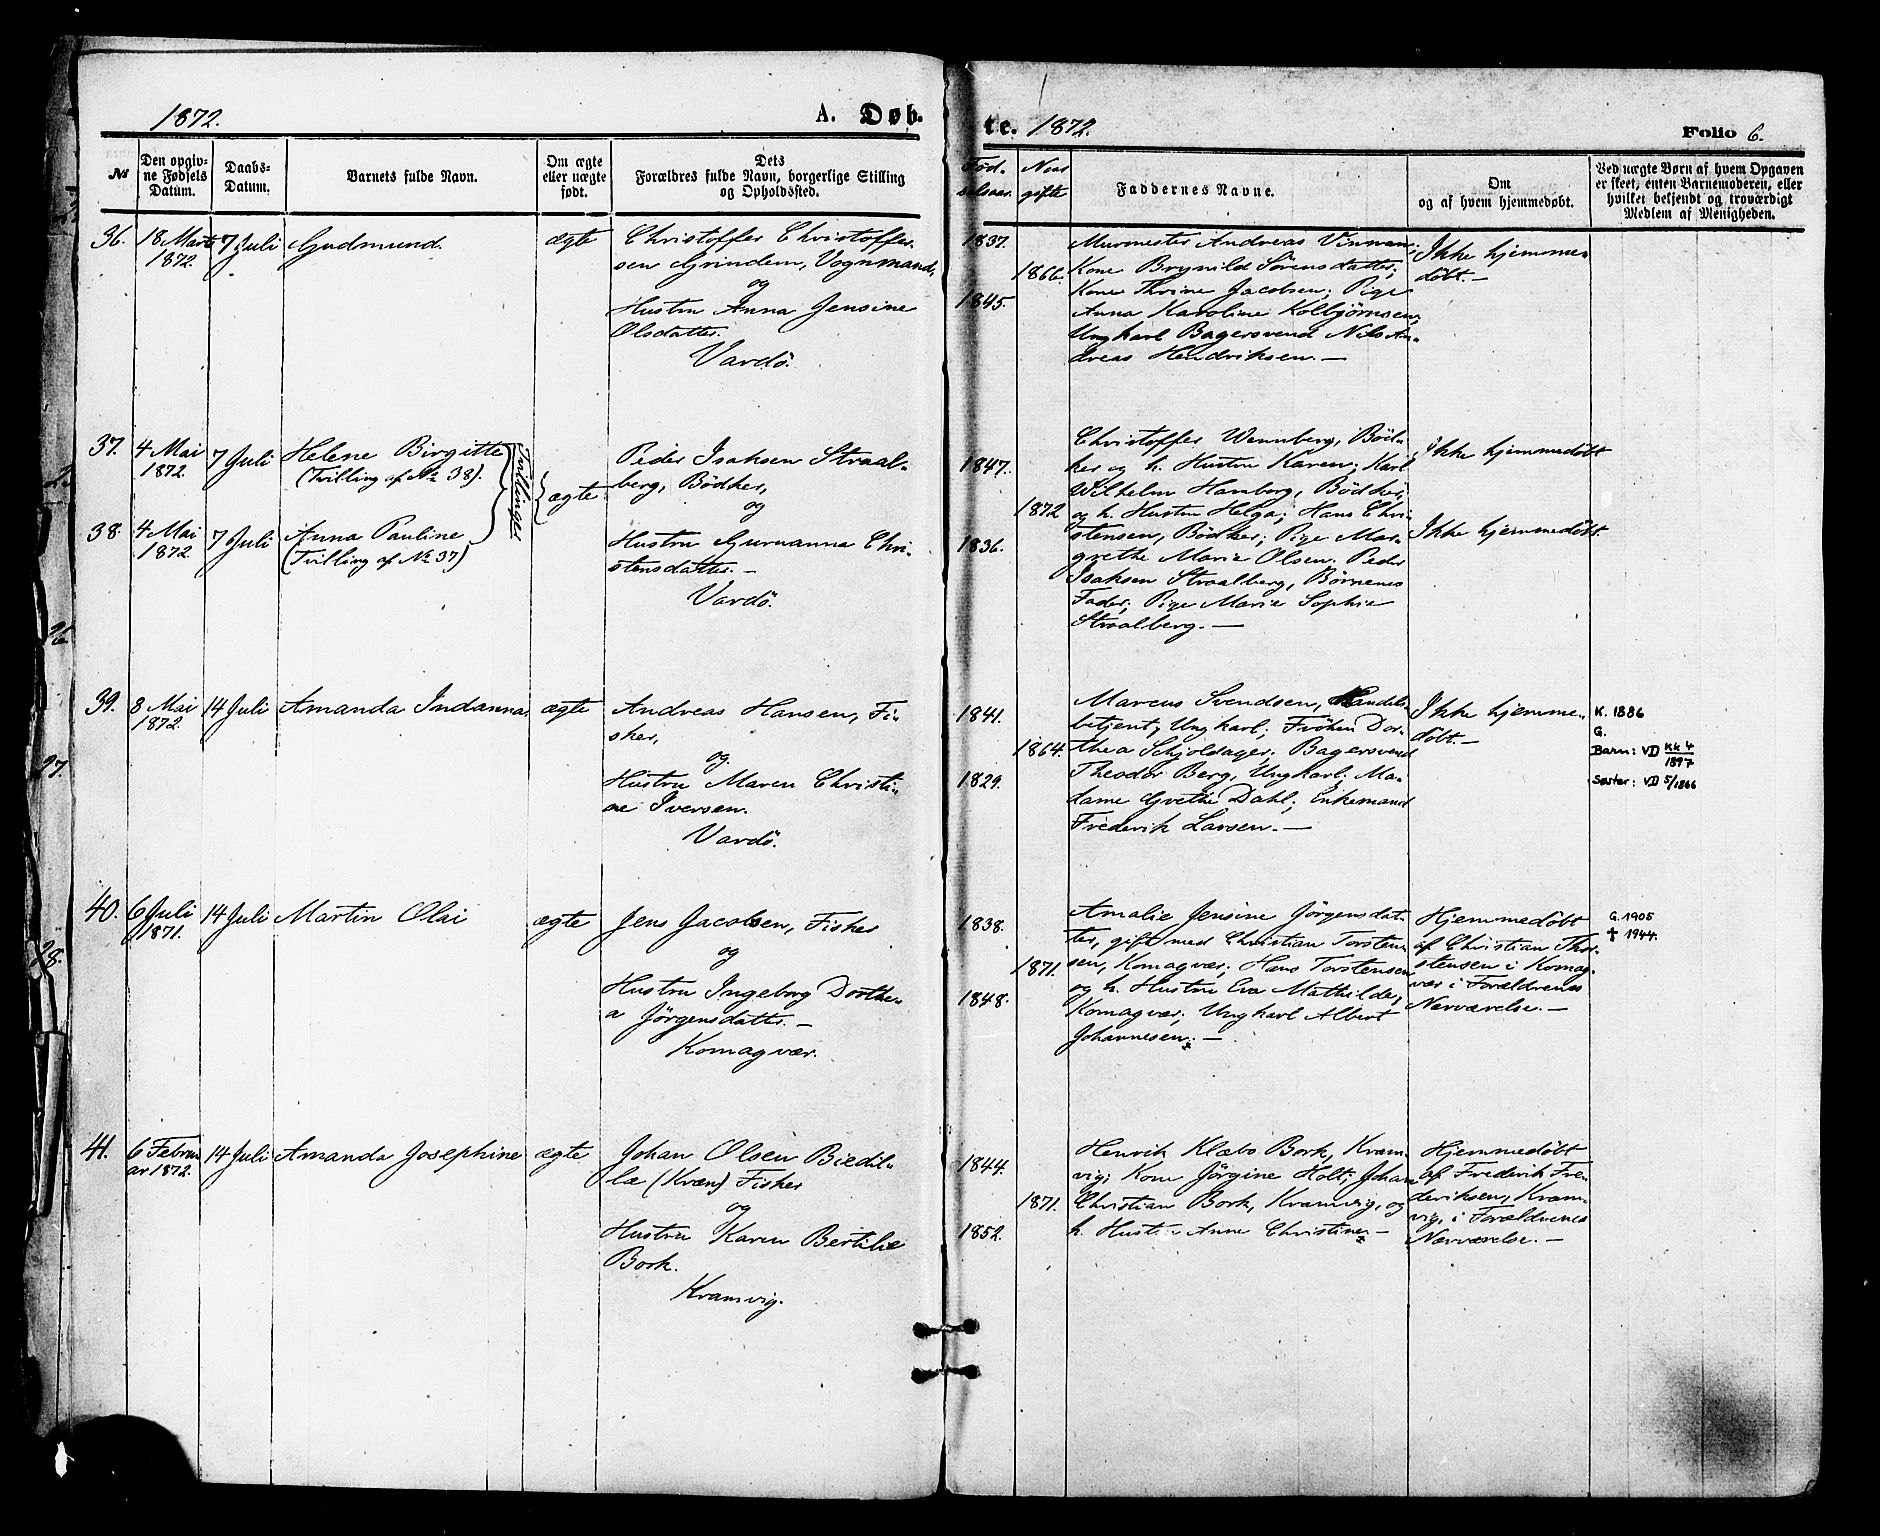 1872.
A. Døb.
te. 1872.
Folio 6.
№
Den opgiv-
ne Fødsels
Datum.
Daabs-
Datum.
Barnets fulde Navn.
Om ægte
eller uægte
født.
Dets
Forældres fulde Navn, borgerlige Stilling
og Opholdssted.
Fød-
selsaar.
Naar
gifte
Faddernes Navne.
Om
og af hvem hjemmedøbt.
Ved uægte Børn af hvem Opgaven
er skeet, enten Barnemoderen, eller
hvilket bekjendt og troværdigt
Medlem af Menigheden.
36.
18 Marts
1872.
7 Juli
Gudmund.
ægte
Christoffer Christoffer-
sen Grindem, Vognmand,
og
Hustru Anna Jensine
Olsdatter.
Vardö.
1837.
1866.
1845.
Murmester Andreas Vinnan;
Kone Brynild Sörensdatter;
Kone Thrine Jacobsen; Pige
Anna Karoline Kolbjørnsen;
Ungkarl Bagersvend Nils An-
dreas Hendriksen. —
Ikke hjemme-
døbt. —
37.
4 Mai
1872.
7 Juli
Helene Birgitte
(Tvilling af № 38).
Tvillinger
38.
4 Mai
1872.
7 Juli
Anna Pauline
(Tvilling af № 37)
ægte
Peder Isaksen Straal-
berg, Bødker,
og
Hustru Gurianna Chri-
stensdatter. —
Vardö.
1847.
1872
1836.
Christoffer Wennberg, Bød-
ker og h. Hustru Karen; Karl
Wilhelm Hamborg, Bødker,
og h. Hustru Helga; Hans Chri-
stensen, Bødker; Pige Mar-
grethe Marie Olsen. Peder
Isaksen Straalberg, Børnenes
Fader; Pige Marie Sophie
Straalberg. —
Ikke hjemmedøbt
Ikke hjemmedøbt.
39.
8 Mai
1872.
14 Juli
Amanda Indianna.
ægte
Andreas Hansen, Fi-
sker,
og
Hustru Maren Christi-
ne Iversen.
Vardö.
1841.
1864.
1829.
Marcus Svendsen, Handels-
betjent, Ungkarl; Fröken Dor-
thea Schjoldager; Bagersvend
Theodor Berg, Ungkarl; Ma-
dame Grethe Dahl; Enkemand
Frederik Larsen. —
Ikke hjemme-
døbt. —
K. 1886
G.
Barn: VD Kk 4
1897
Søster: VD 5/1866
40.
6 Juli
1871.
14 Juli
Martin Olai
ægte
Jens Jacobsen, Fisker
og
Hustru Ingeborg Dorthe-
a Jörgensdatter. —
Komagvær.
1838.
1871.
1848.
Amalie Jensine Jörgensdat-
ter, gift med Christian Torsten-
sen, Komagvær; Hans Torstensen
og h. Hustru Eva Mathilde,
Komagvær; Ungkarl Albert
Johannesen. —
Hjemmedøbt
af Christian Thor-
stensen i Komag-
vær i Forældrenes
Nærværelse. —
G. 1905
† 1944.
41.
6 Febru-
ar 1872.
14 Juli
Amanda Josephine
ægte
Johan Olsen Biedil-
la (Kvæn) Fisker
og
Hustru Karen Bertilie
Bork.
Kramvig.
1844.
1871.
1852.
Henrik Klæbo Bork, Kram-
vig; Kone Jörgine Holt; Johan
Christian Bork, Kramvig, og
h. Hustru Anne Christine. —
Hjemmedøbt
af Frederik Fre-
deriksen, Kram-
vig, i Forældrenes
Nærværelse. —
27.
28.